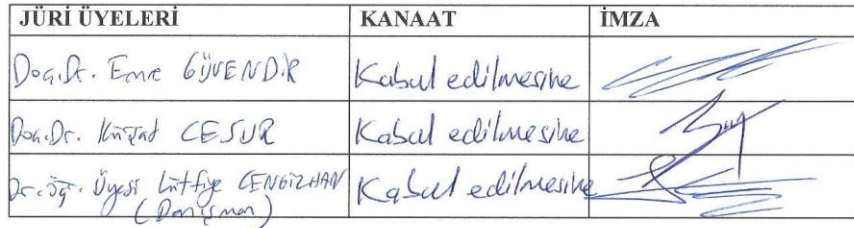 JÜRİ ÜYELERİ KANAAT İMZA
Doç.Dr. Emre GÜVENDİR Kabul edilmesine
Doç.Dr. Kürşat CESUR Kabul edilmesine
Dr. Öğr. Üyesi Lütfiye CENGİZHAN Kabul edilmesine
(Danışman)